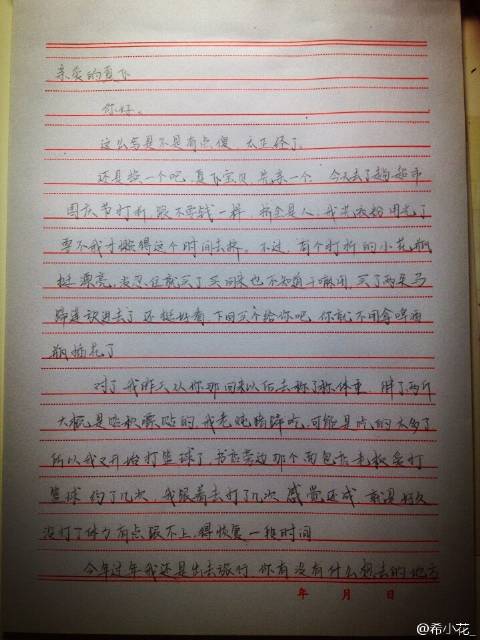 亲爱的夏天
你好。
这么写是不是有点傻 太正经了
还是换一个吧,夏天宝贝 先亲一个 今天去了趟超市
国庆节打折,跟不要钱一样,挤全是人,我洗衣粉用光了
要不我才懒得这个时间去挤,不过,有个打折的小花瓶
挺漂亮,没忍住就买了 买回来也不知道干嘛用,买了两朵马
蹄莲放进去了 还挺好看,下回买个给你吧 你就不用拿啤酒
瓶插花了
对了 我昨天从你那回来以后去称了称体重 胖了两斤
大概是 的,我老 吃,可能是吃的太多了
所以我又开始打篮球了,书店旁边那个面包店老板爱打
篮球 约了几次 我跟着去打了几次 感觉还成 就是好久
没打了体力有点跟不上,得恢复一段时间
今年过年我还是出去旅行 你有没有什么想去的地方
年 月 日
@希小花_